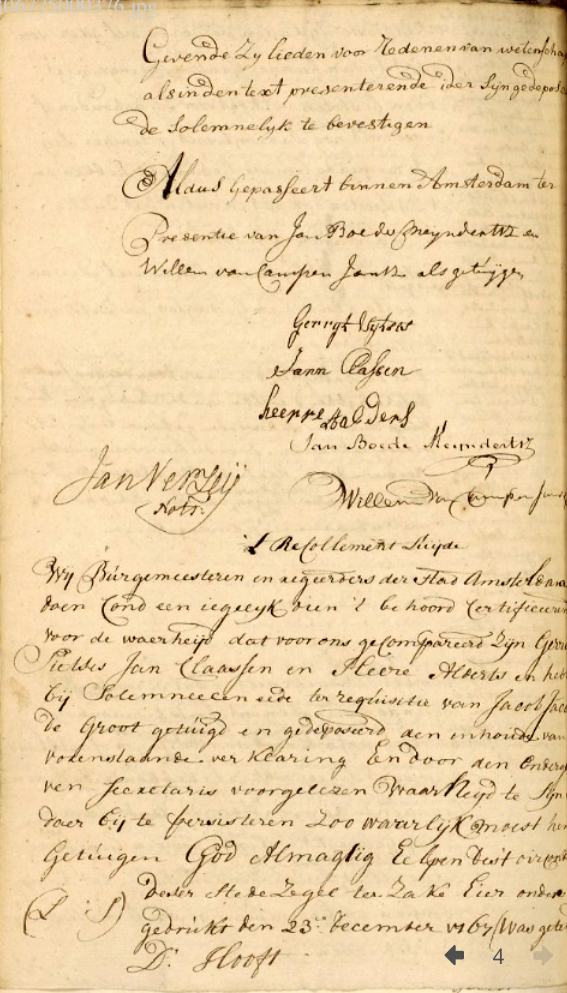 Gevende Zy lieden voor Redenen van wetenscha
als in den text presenterende ider Syn gedepos
de Solemnelyk te bevestigen
Aldus Gepasseert binnen Amsterdam ter
Presentie van Jan Boede Meyndertsz en
Willem van Campen Jansz als getuygen
Gerryt
Jann Classen
heerre Halders
Jan Boede Meyndertsz
Jan Verleij
Nots.
Willem van Campen Jansz
't Recollement Luijde
Wij Burgemeesteren en regeerders der stad Amsterdam
doen Cond een iegelyk dien 't behoord Certificeeren
voor de waerheijd dat voor ons gecompareerd Zijn Gerri
Sietses Jan Claassen en Heere Alberts en heb
bij Solemneelen eede ter requisitie van Jacob Jaco
de Groot getuijgd en gedeposeerd den inhoude van
vorenstaande verklaring En door den onderg
ven Secretaris voorgelezen Waarheyd te Sijn
daer bij te persisteren Zoo waarlijk moest hen
Getuijgen God Almagtig Helpen
Deser stede Zegel ter Zake hier onder
(L : S)
gedrukt den 23e December (Was gete
D. Hooft
4